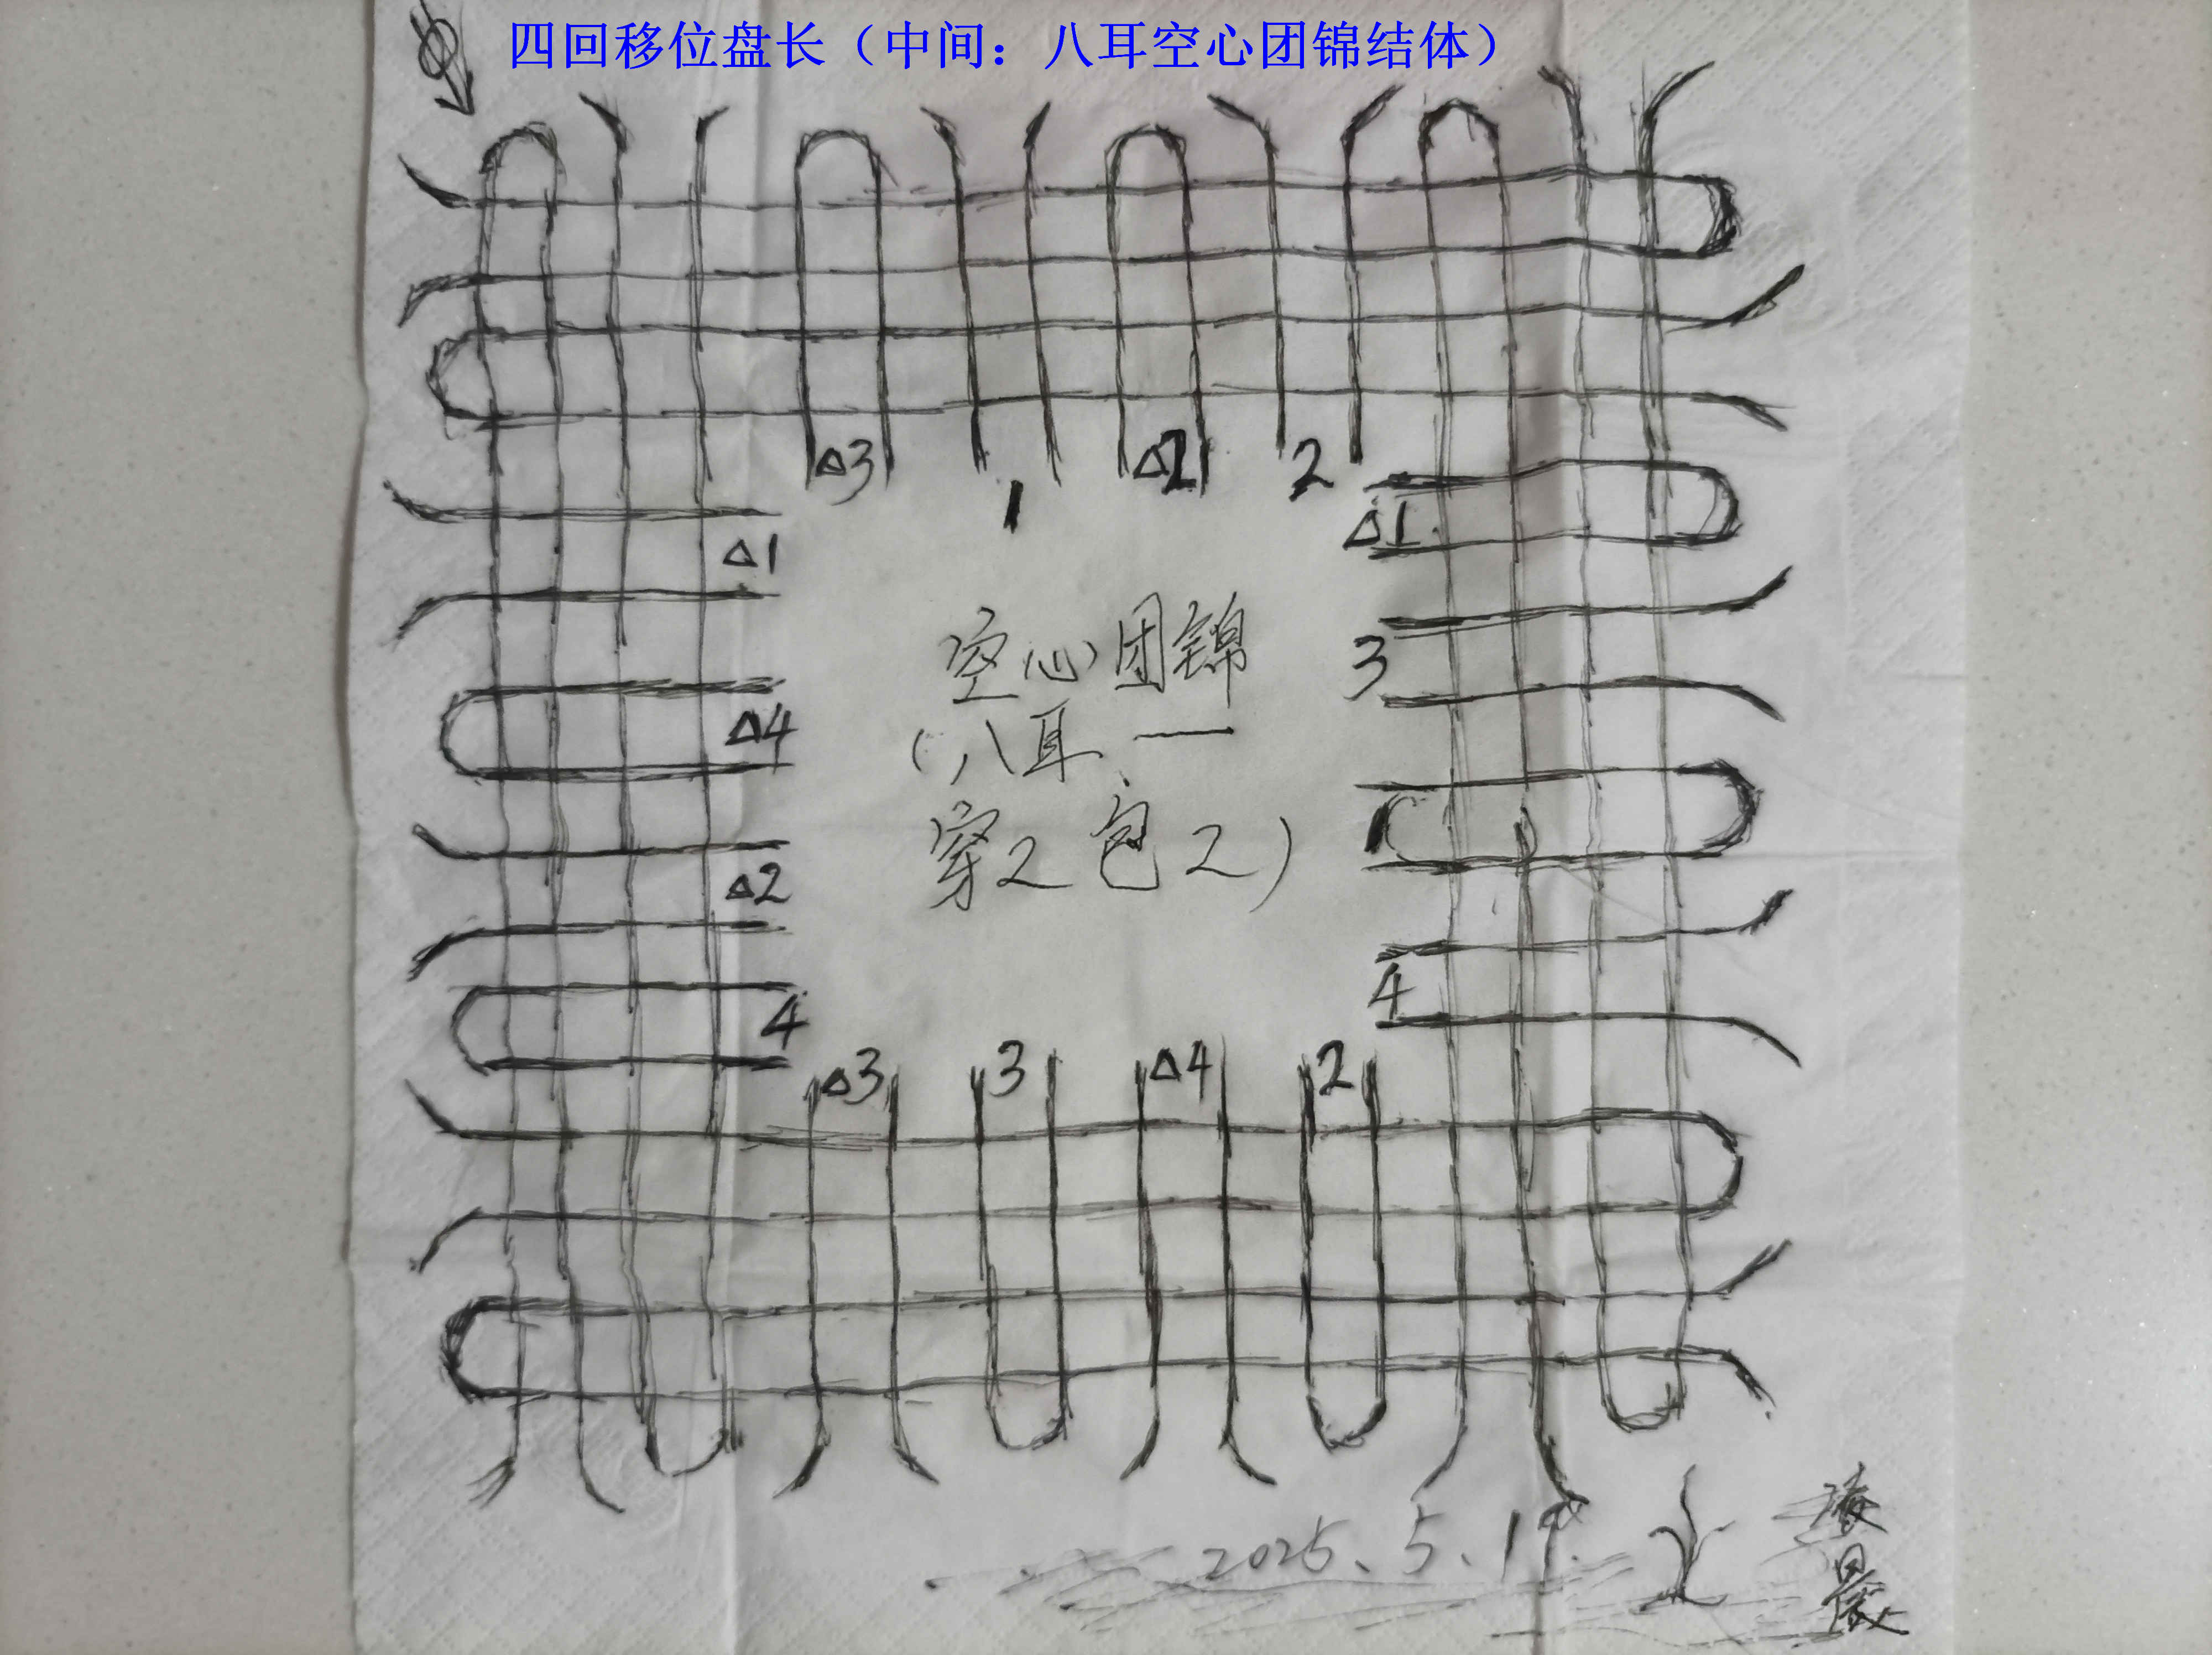 四回移位盘长（中间：八耳空心团锦结体）
△3 1 △2 2
△1 △1
3
空心团锦
（八耳、一
穿2包2）
△4
1
△2
4
4
△3 3 △4 2
2025.5.17.